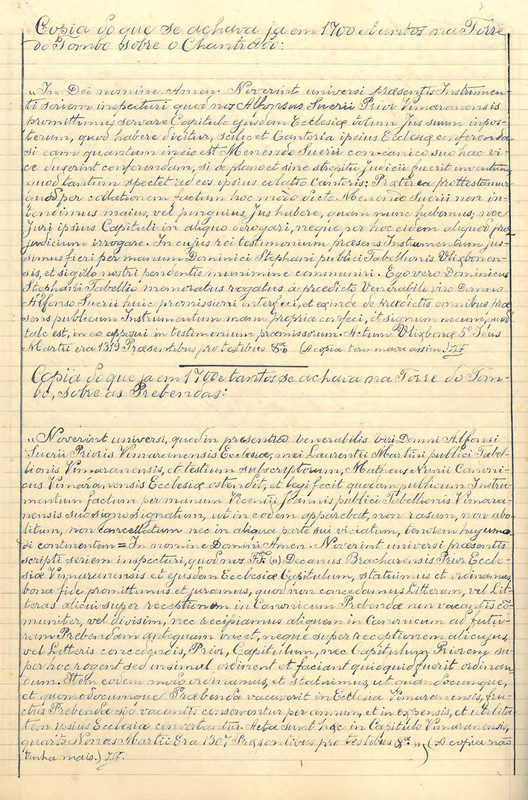 Copia do que se achava ja em 1700 e tantos na Torre
do Tombo sobre o Chantrado:
"In Dei nomine Amen. Noverint universi præsentis Instrumen-
ti seriem inspecturi quod nos Alfonsus Suerii Prior Vimaranensis
promittimus servare Capitulo ejusdem Ecclesiæ totum Jus suum inpos-
terum, quod habere dicitur, scilicet Cantoria ipsius Ecclesiæ conferenda
si eam quantum in eis est Menendo Suerii concanico suo hac vi
ce duxerint conferendam, si de plano et sine strepitu Judicii querit inventum,
quod tantum spectet ad eos ipsius colatio Cantoris; Præterea prottestamur
quod per colationem factum hoc modo dicto Menendo Suerii non in-
tendimus maius, vel pinguius Jus habere, quam nunc habemus; nec
Juri ipsius Capituli in aliquo derogari, neque per hoc eidem aliquod præ-
judicium irrogare. In cujus rei testimonium præsens Instrumentum jus-
simus fieri per manum Dominici Stephani publici Tabellionis Ulixbonen-
sis, et sigillo nostri pendentis munimine communiri. Ego vero Dominicus
Stephani Tabellio memoratus rogatus a prædicto Venerabile viro Domno
Alfonso Suerii huic promissioni interfeci, et exinde de prædictis omnibus præ-
sens publicum Instrumentum manu propria confeci, et signum meum, quod
tale est, in eo apposui in testimonium præmissorum. Actum Ulixbonæ 5º Idus
Martii era 1313 Præsentibus pro testibus &ª (A copia tem mara assim)
Copia do que ja em 1700 e tantos se achava na Torre do Tom-
bo, sobre as Prebendas:
"Noverint universi, quod in presentia venerabilis viri Domni Alfonsi
Suerii Prioris Vimaranensis Ecclesiæ, mei Laurentii Martini publici Tabel-
lionis Vimaranensis, et testium subscriptorum, Matheus Nunii Canoni-
cus Vimaranensis Ecclesiæ ostendit, et legi fecit quodam publicum Instru-
mentum factum per manum Vicentii Joannis publici Tabellionis Vimara-
nensis suo signo signatum, ut in eodem apparebat, non rasum, non abo-
litum, non cancellatum nec in aliqua parte sui viciatum, tenorem hujusmo-
di continentem = In nomine Domini Amen. Noverint universi præsentis
scripti seriem inspecturi, quod nos Decanus Bracharensis Prior Eccle-
siæ Vimaranensis et ejusdem Ecclesiæ Capitulum, statuimus et ordinamus,
bona fide promittimus et juramus, quod non concedamus Litteram, vel Lit-
teras alicui super receptionem in Canonicum Prebendæ non vacantis co-
muniter, vel divisim, nec recipiamus aliquem in Canonicum ad futu-
ram Prebendam antequam vacet, neque super receptionem alicujus,
vel Letteris concedendis, Prior, Capitulum, nec Capitulum Priorem su-
per hoc rogent sed insimul ordinent et faciant quidquid fuerit ordinan-
dum. Item eodem modo ordinamus, et statuimus, et quandocumque,
et quomodocumque Præbenda vacaverit in Ecclesia Vimaranensis, fru-
ctus Prebendæ sic vacantis conserventur per annum, et in expensis, et utilita-
tem ipsius Ecclesia convertantur. Acta sunt hæc in Capitulo Vimaranensi,
quarto Nonas Martii Era 1307 Præsentibus pro testibus &ª" (A copia não
tinha mais.)